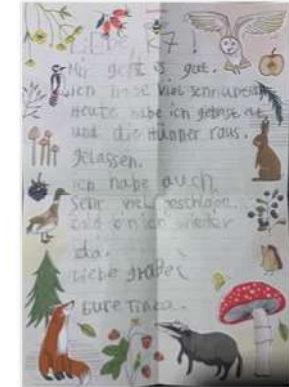 Liebe, K7!
Mir geht es gut.
ich habe viel schnupfen
Heute habe ich gebastelt
und die Hünner raus.
gelassen.
ich habe auch
Sehr viel geschlafen.
bald bin ich wieder
da.
Liebe grüße
Eure Tinka.